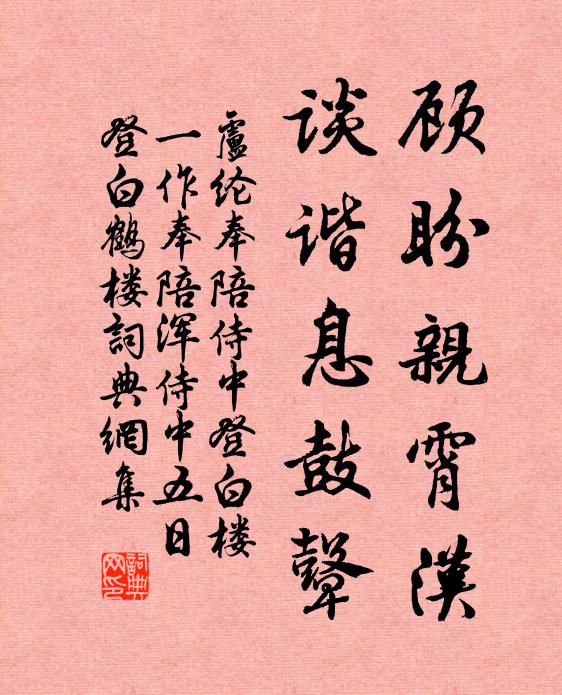 顾盼親霄漢
谈谐息鼓鼙
盧纶奉陪侍中登白楼
一作奉陪浑侍中五日
登白鹤楼詞典網集
詞典
网印